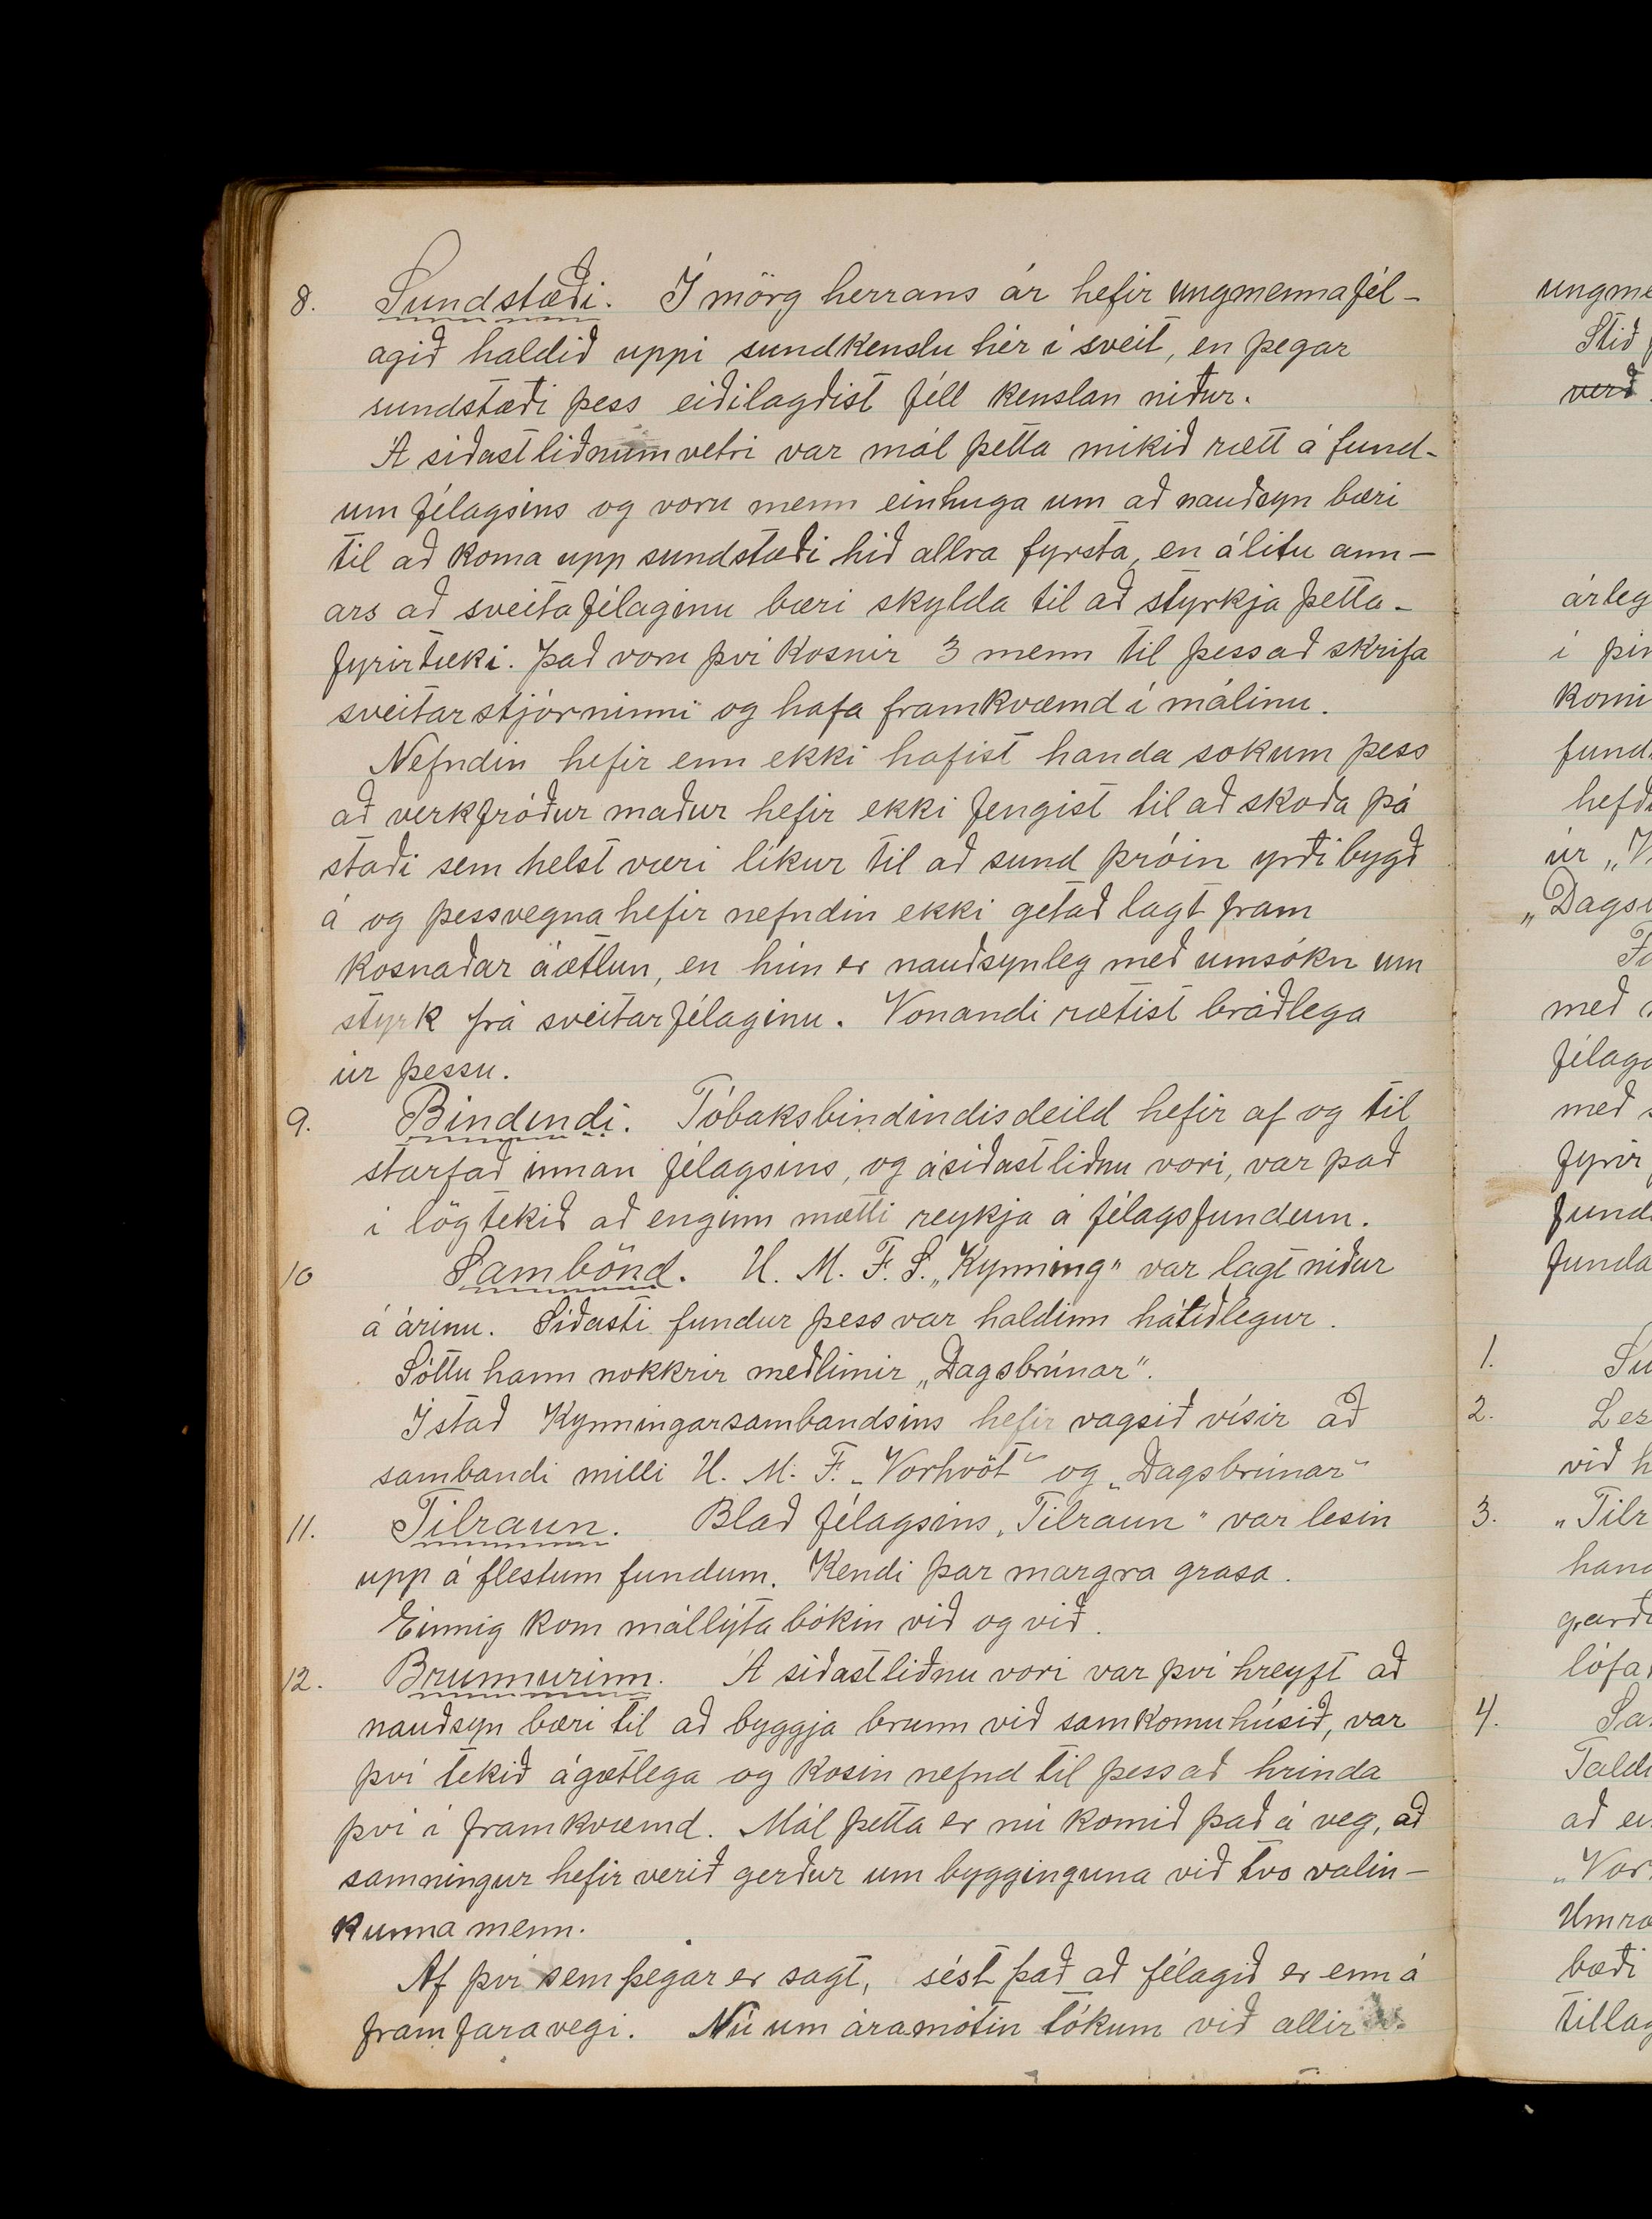 8. Sundstæði. Í mörg herrans ár hefir ungmennafél-
agið haldið uppi sundkenslu hér í sveit, en þegar
sundstæði þess eiðilagðist féll kenslan niður.
Á síðastliðnum vetri var mál þetta mikið rætt á fund-
um félagsins og voru menn einhuga um að nauðsyn bæri
til að koma upp sundstæði hið allra fyrsta, en álitu ann-
ars að sveitafélaginu bæri skylda til að styrkja þetta-
fyrirtæki. Það voru því kosnir 3 menn til þess að skrifa
sveitarstjórninni og hafa framkvæmd í málinu.
Nefndin hefir enn ekki hafist handa sokum þess
að verkfróður maður hefir ekki fengist til að skoða þá
staði sem helst væri líkur til að sund þróin yrði bygð
á og þessvegna hefir nefndin ekki getað lagt fram
kosnaðar áætlun, en hún er nauðsynleg með umsókn um
styrk frá sveitarfélaginu. Vonandi rætist bráðlega
úr þessu.
9. Bindindi. Tóbaksbindindisdeild hefir af og til
starfað innan félagsins, og á síðastliðnu vori, var það
í lög tekið að enginn mætti reykja á félagsfundum.
10 Sambönd. U. M. F. S. „Kynning" var lagt niður
á árinu. Síðasti fundur þess var haldinn hátíðlegur.
Sóttu hann nokkrir meðlimir „Dagsbrúnar".
Í stað Kynningarsambandsins hefir vagsið vísir að
sambandi milli U. M. F. „Vorhvöt" og „Dagsbrúnar"
11. Tilraun. Blað félagsins „Tilraun" var lesin
upp á flestum fundum. Kendi þar margra grasa.
Einnig kom mállýta bókin við og við.
12. Brunnurinn. Á síðastliðnu vori var því hreyft að
nauðsyn bæri til að byggja brunn við samkomuhúsið, var
því tekið ágætlega og kosin nefnd til þess að hrinda
því í framkvæmd. Mál þetta er nú komið það á veg, að
samningur hefir verið gerður um bygginguna við tvo valin-
kunna menn.
Af því sem þegar er sagt, sést það að félagið er enn á
framfaravegi. Nú um áramótin tókum við allir
ungme
Stið
verð
árleg
í þin
komi
fund
hefð
úr „V
„Dags
með
félag
með
fyrir
fund
funda
1. Su
2. Les
við h
3. „Tilr
hand
garð
lófa
4. Sa
Taldi
að ei
„Vor
Umræ
bæði
tillag